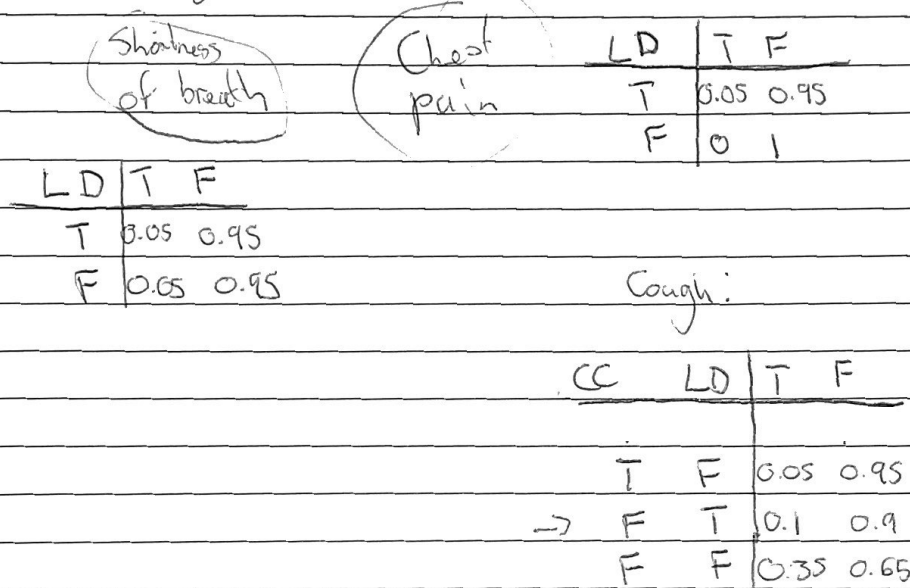 Shortness
of breath
Chest
pain
LD T F
T 0.05 0.95
F 0 1
LD T F
T 0.05 0.95
F 0.05 0.95
Cough:
CC LD T F
T F 0.05 0.95
→ F T 0.1 0.9
F F 0.35 0.65